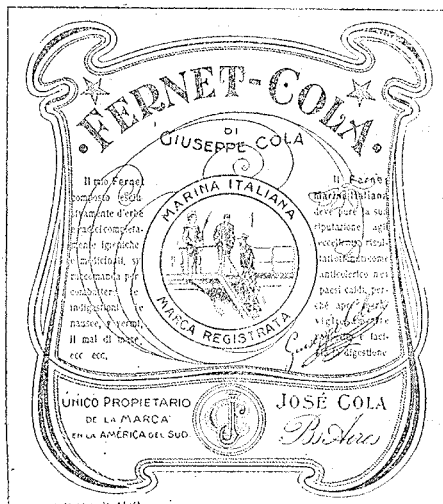 FERNET-COLA
DI
GIUSEPPE COLA
Il mio Fernet
composto esclu-
sivamente d'erbe
e radici completa-
mente igieniche
e medicinali, si
raccomanda per
combattere le
indigestioni, le
nausee, i vermi,
il mal di mare,
ecc ecc,
MARINA ITALIANA
MARCA REGISTRATA
Il Fernet
marina italiana
deve pure la sua
riputazione agli
eccellenti risul-
tati ottenuti come
anticolerico nei
paesi caldi, per-
chè
i faci-
digestione
UNICO PROPIETARIO
DE LA MARCA
EN LA AMÉRICA DEL SUD
JOSÉ COLA
Bs. Aires